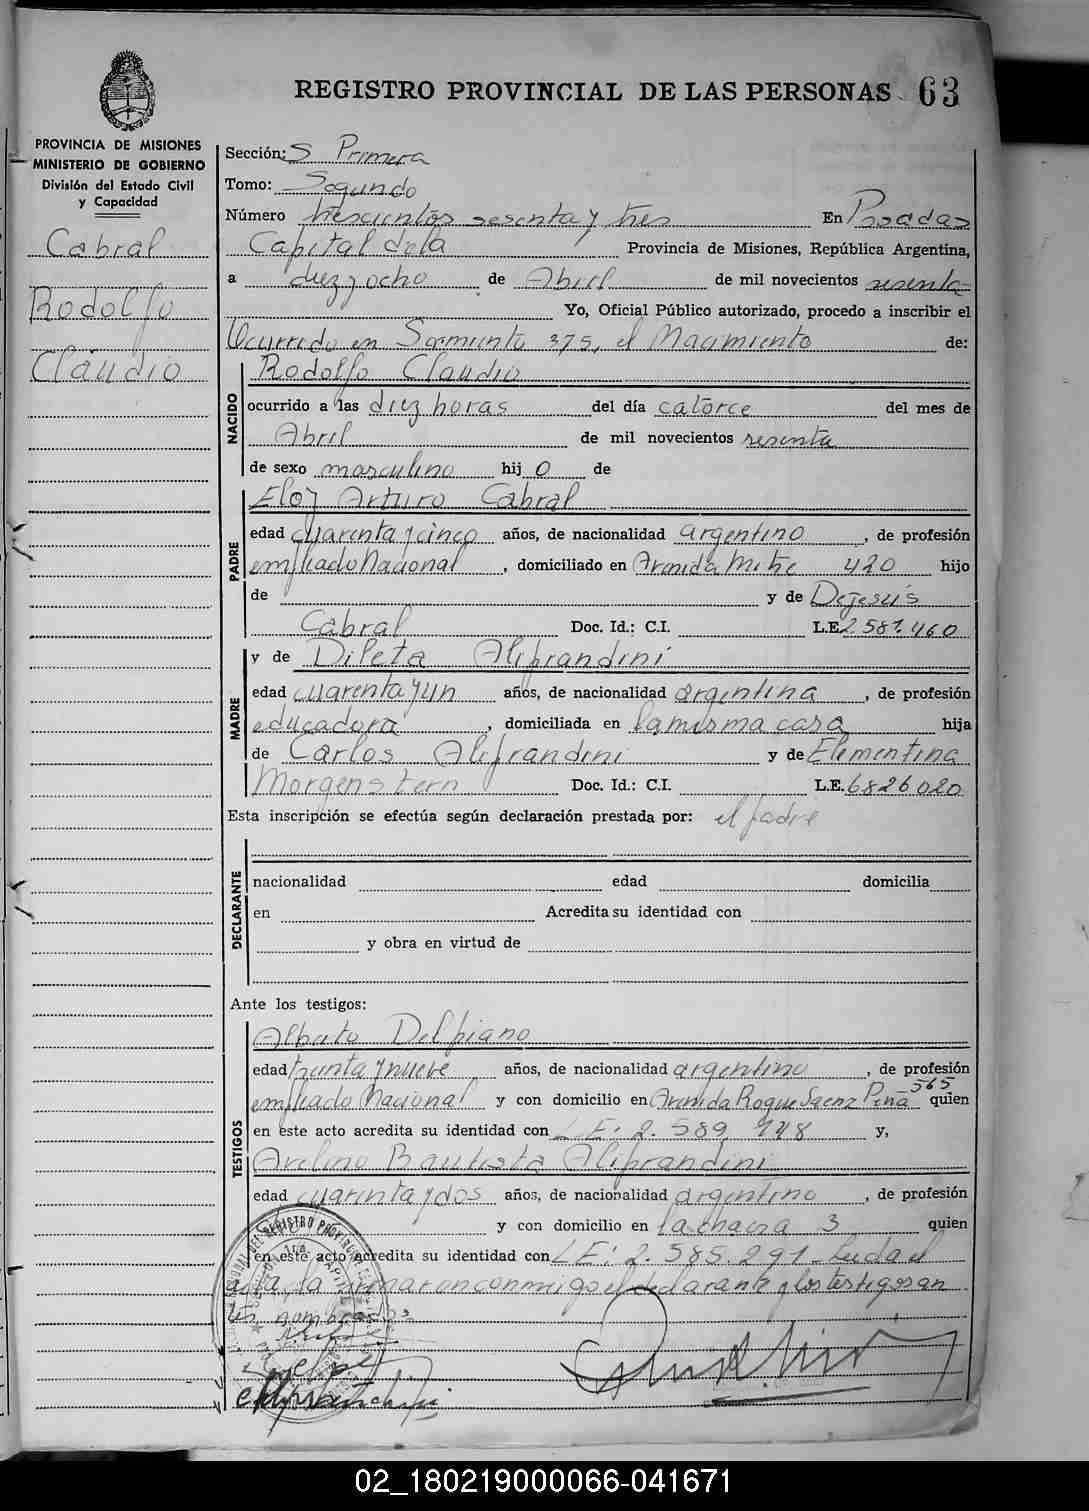 REGISTRO PROVINCIAL DE LAS PERSONAS 63
PROVINCIA DE MISIONES
MINISTERIO DE GOBIERNO
División del Estado Civil
y Capacidad
Cabral
Rodolfo
Claudio
Sección: S Primera
Tomo: Segundo
Número trescientos sesenta y tres En Posadas
Capital dela Provincia de Misiones, República Argentina,
a diez y ocho de Abril de mil novecientos sesenta
Yo, Oficial Público autorizado, procedo a inscribir el
Ocurrido en Sarmiento 375, el Nacimiento de:
NACIDO
Rodolfo Claudio
ocurrido a las diez horas del día catorce del mes de
Abril de mil novecientos sesenta
de sexo masculino hij o de
PADRE
Eloy Arturo Cabral
edad cuarenta y cinco años, de nacionalidad argentino, de profesión
empleado Nacional, domiciliado en Avenida Mitre 420 hijo
de y de Dejesús
Cabral Doc. Id.: C.I. L.E. 2.587.460
MADRE
y de Dileta Aliprandini
edad cuarenta y un años, de nacionalidad argentina, de profesión
educadora, domiciliada en la misma casa hija
de Carlos Aliprandini y de Elementina
Morgenstern Doc. Id.: C.I. L.E. 6826020
Esta inscripción se efectúa según declaración prestada por: el padre
DECLARANTE
nacionalidad edad domicilia
en Acredita su identidad con
y obra en virtud de
Ante los testigos:
TESTIGOS
Alberto Delpiano
edad treinta y nueve años, de nacionalidad argentino, de profesión
empleado Nacional y con domicilio en Avenida Roque Saenz Peña 565 quien
en este acto acredita su identidad con LE: 2.589.948 y,
Avelino Bautista Aliprandini
edad cuarenta y dos años, de nacionalidad argentino, de profesión
y con domicilio en la chacra 3 quien
en este acto acredita su identidad con LE: 2.585.291 Leida el
acta, la firmaron conmigo el declarante y los testigos an
tes nombrados
02_180219000066-041671